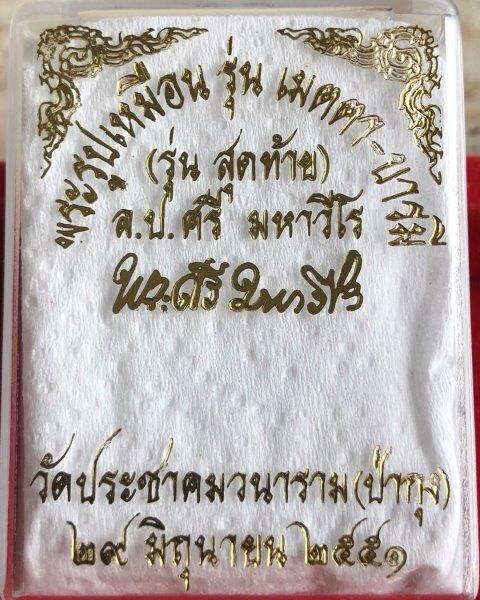 พระรูปเหมือน รุ่น เมตตา-บารมี
(รุ่น สุดท้าย)
ล.ป. ศรี มหาวีโร
พระศรี มหาวีโร
วัดประชาคมวนาราม (ป่ากุง)
๒๙ มิถุนายน ๒๕๕๑